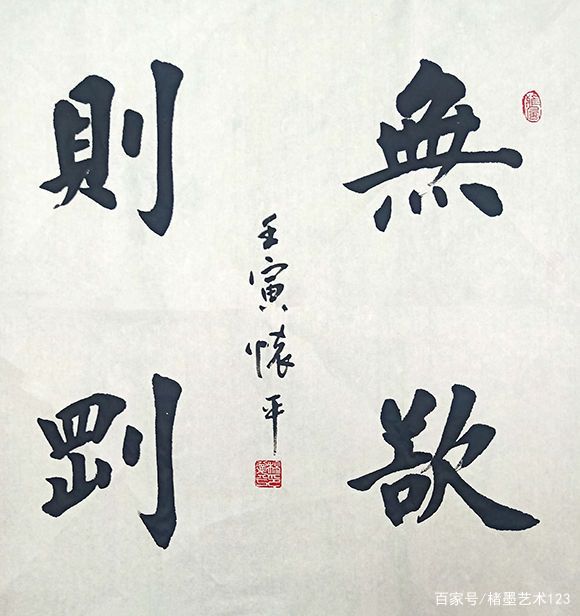 無欲
則剛
壬寅懷平
百家号/楮墨艺术123